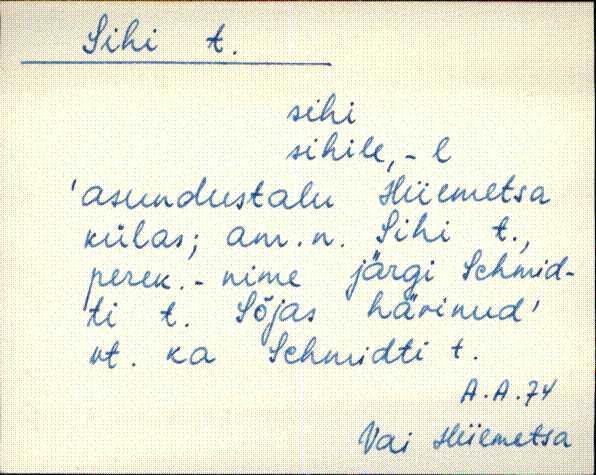 Sihi t.
sihi
sihile, -l
'asundustalu Hiiemetsa
külas; am. n. Sihi t.,
perek.- nime järgi Schmid-
ti t. Sõjas hävinud'
vt. ka Schmidti t.
A.A.74
Vai Hiiemetsa